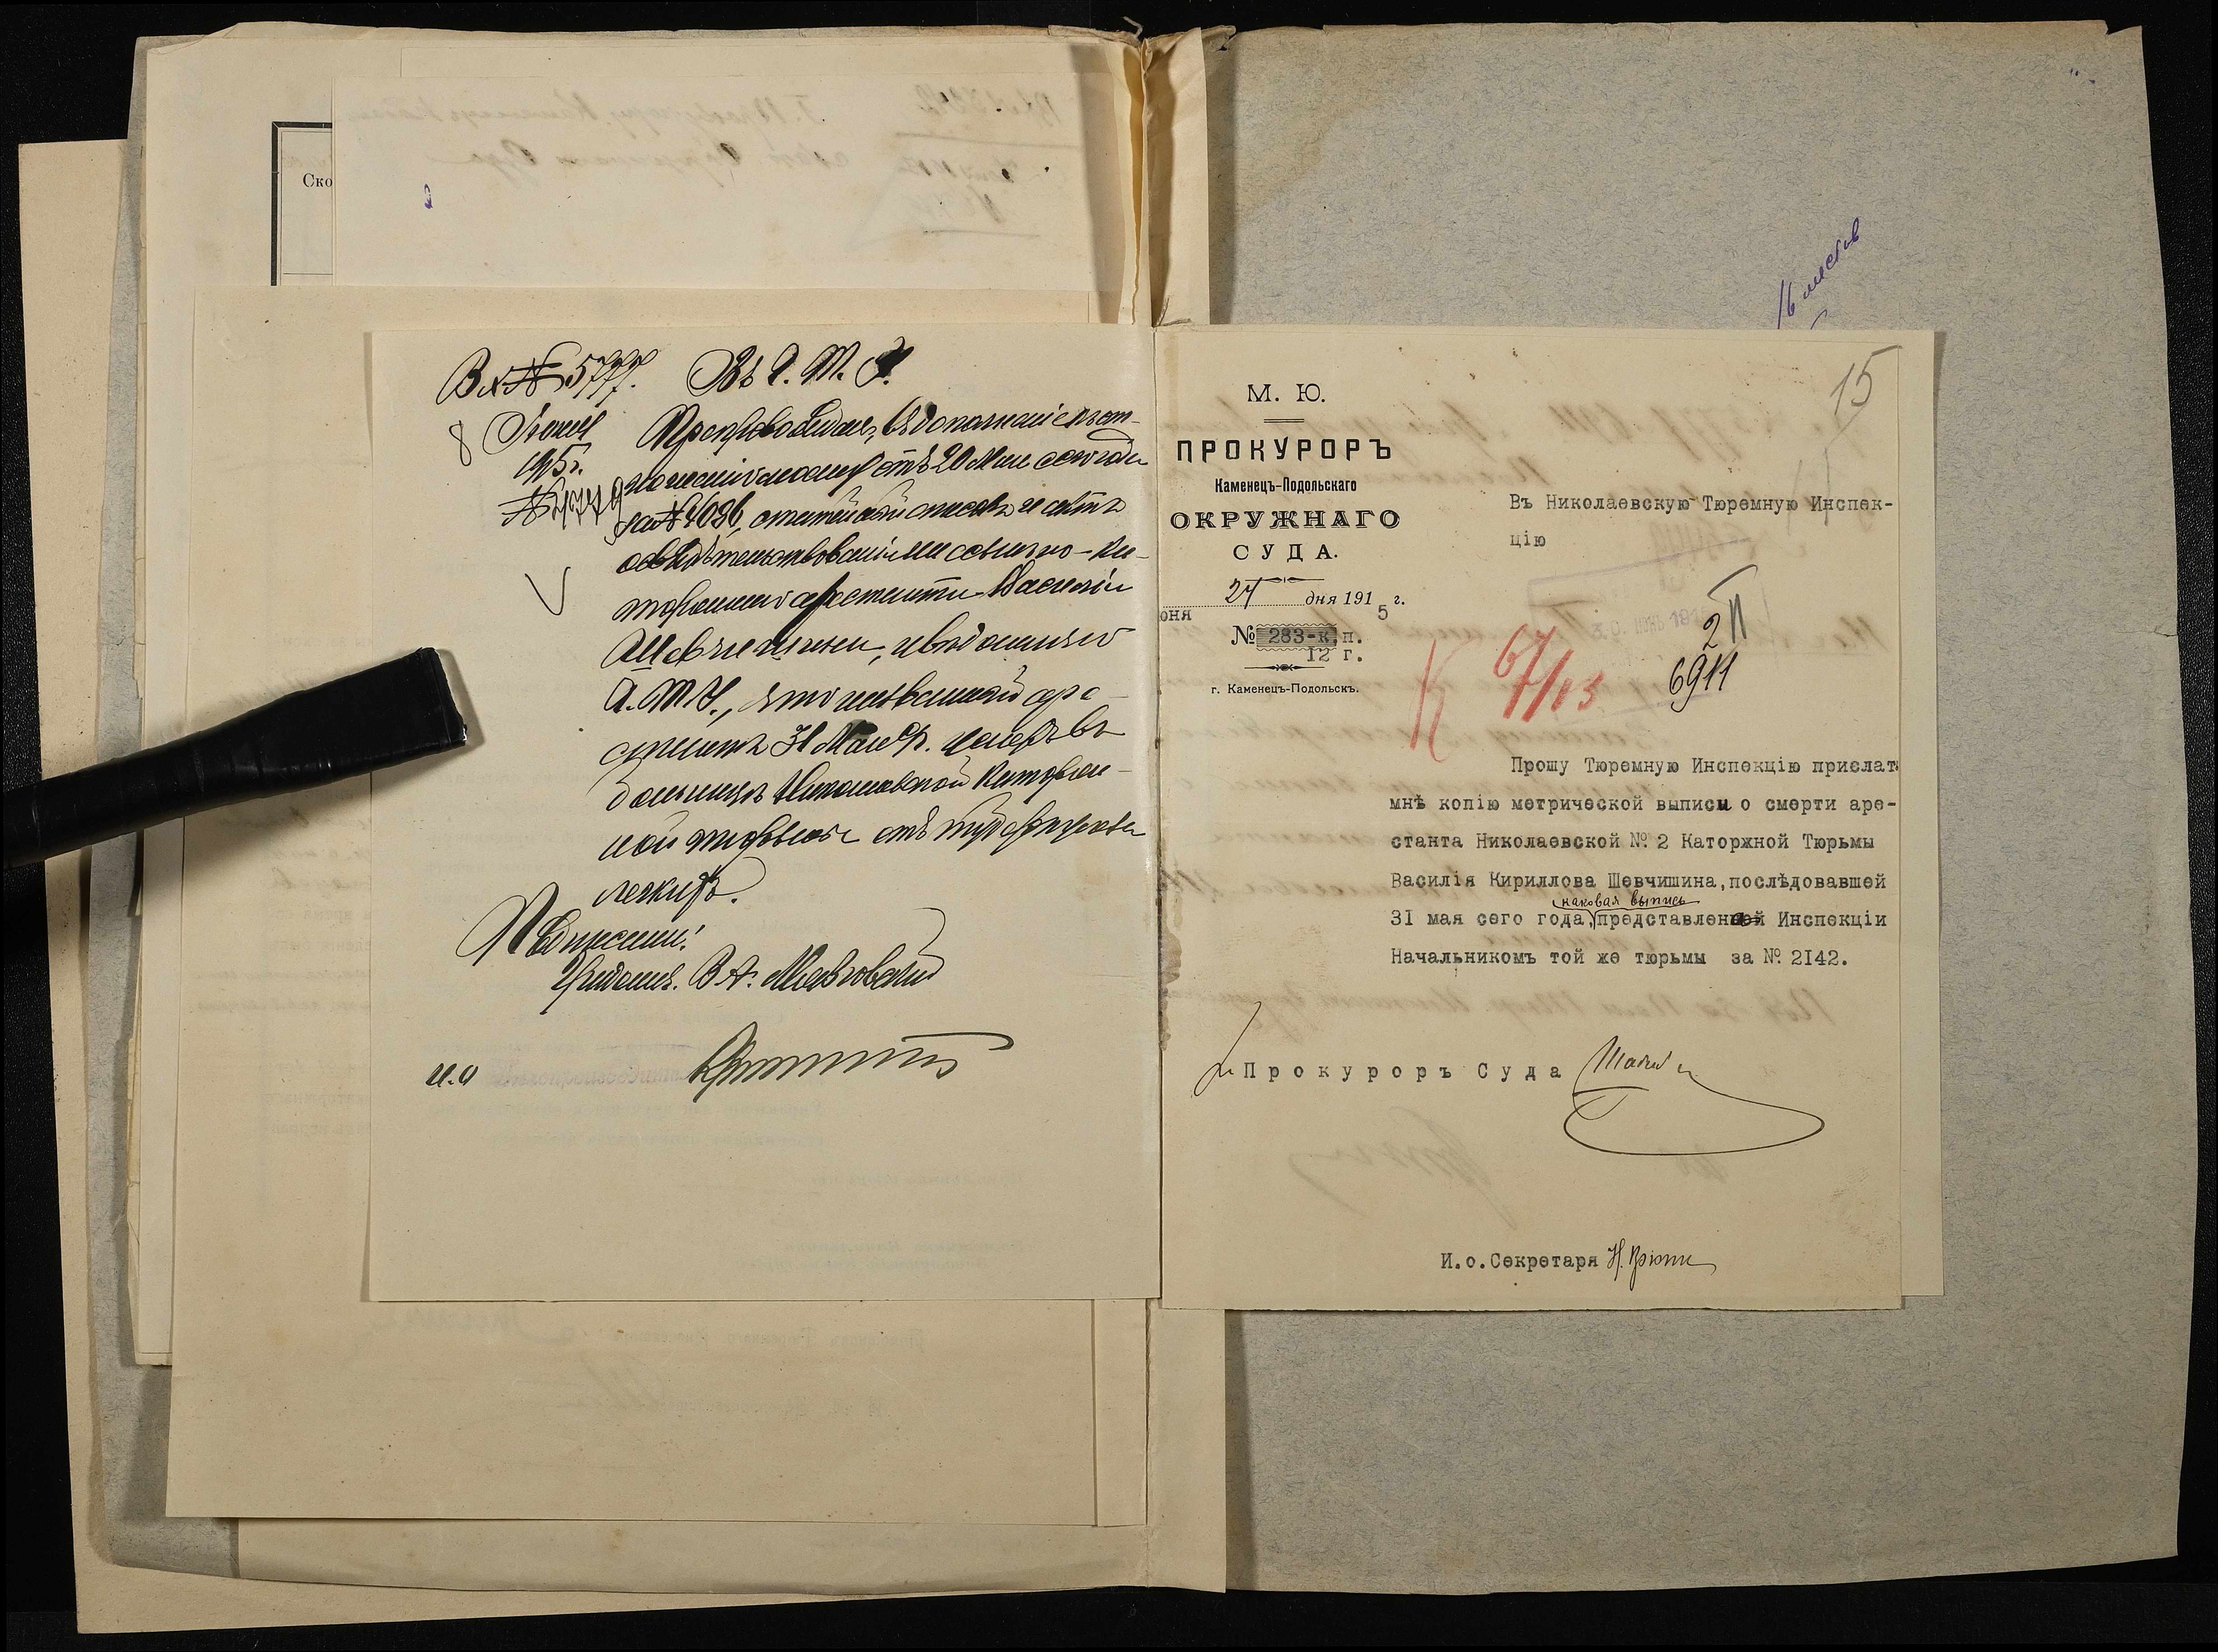 Ско
Вх № 5777. Въ Г. Т. У.
8 Іюня
1915 г.
Препровождая, въ дополненіе къ от-
ношенію моему отъ 20 Мая сего года
за № 4096, статейный списокъ и актъ
освидѣтельствованія ссыльно-ка-
торжнаго арестанта Василія
Шевчишина, увѣдомляю
Г. Т. У., что названный аре-
стантъ 31 Мая с. г. умеръ въ
больницѣ Николаевской каторж-
ной тюрьмы отъ туберкулеза
легкихъ.
Подписали:
и.о
16 листов
15
М. Ю.
ПРОКУРОРЪ
Каменецъ-Подольскаго
ОКРУЖНАГО
СУДА.
27 дня 1915 г.
юня
№ 283-к.п.
12 г.
г. Каменецъ-Подольскъ.
Въ Николаевскую Тюремную Инспек-
цію
2 П
6911
К 67/13
Прошу Тюремную Инспекцію прислать
мнѣ копію метрической выписи о смерти аре-
станта Николаевской № 2 Каторжной Тюрьмы
Василія Кириллова Шевчишина, послѣдовавшей
каковая выпись
31 мая сего года, представленной Инспекціи
Начальникомъ той же тюрьмы за № 2142.
Прокуроръ Суда
И.о.Секретаря